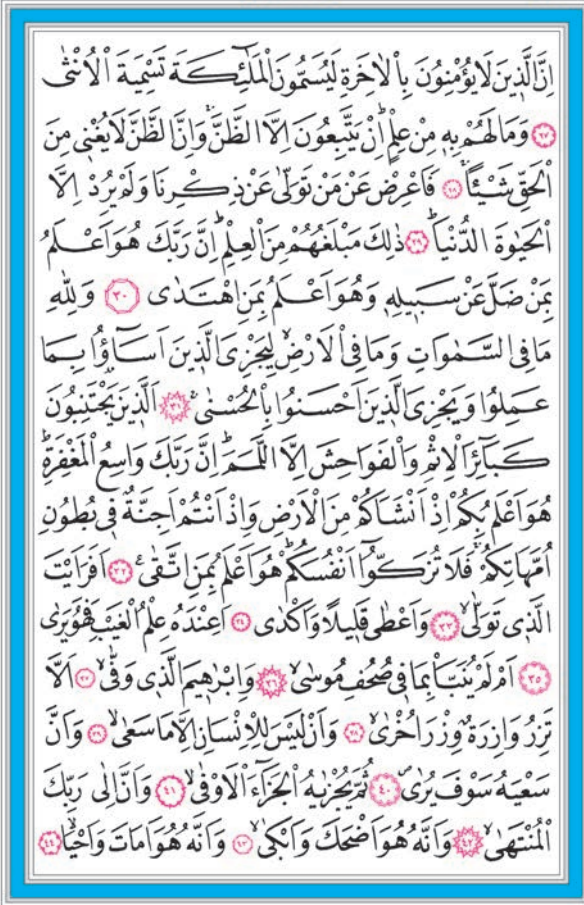 اِنَّ الَّذٖينَ لَا يُؤْمِنُونَ بِالْاٰخِرَةِ لَيُسَمُّونَ الْمَلٰٓئِكَةَ تَسْمِيَةَ الْاُنْثٰى
﴿٢٧﴾ وَمَا لَهُمْ بِهٖ مِنْ عِلْمٍ اِنْ يَتَّبِعُونَ اِلَّا الظَّنَّ وَاِنَّ الظَّنَّ لَا يُغْنٖى مِنَ
الْحَقِّ شَيْئًا ﴿٢٨﴾ فَاَعْرِضْ عَنْ مَنْ تَوَلّٰى عَنْ ذِكْرِنَا وَلَمْ يُرِدْ اِلَّا
الْحَيٰوةَ الدُّنْيَا ﴿٢٩﴾ ذٰلِكَ مَبْلَغُهُمْ مِنَ الْعِلْمِ اِنَّ رَبَّكَ هُوَ اَعْلَمُ
بِمَنْ ضَلَّ عَنْ سَبٖيلِهٖ وَهُوَ اَعْلَمُ بِمَنِ اهْتَدٰى ﴿٣٠﴾ وَلِلّٰهِ
مَا فِى السَّمٰوَاتِ وَمَا فِى الْاَرْضِ لِيَجْزِىَ الَّذٖينَ اَسَٓاؤُا بِمَا
عَمِلُوا وَيَجْزِىَ الَّذٖينَ اَحْسَنُوا بِالْحُسْنٰى ﴿٣١﴾ اَلَّذٖينَ يَجْتَنِبُونَ
كَبَٓائِرَ الْاِثْمِ وَالْفَوَاحِشَ اِلَّا اللَّمَمَ اِنَّ رَبَّكَ وَاسِعُ الْمَغْفِرَةِ
هُوَ اَعْلَمُ بِكُمْ اِذْ اَنْشَاَكُمْ مِنَ الْاَرْضِ وَاِذْ اَنْتُمْ اَجِنَّةٌ فٖى بُطُونِ
اُمَّهَاتِكُمْ فَلَا تُزَكُّٓوا اَنْفُسَكُمْ هُوَ اَعْلَمُ بِمَنِ اتَّقٰى ﴿٣٢﴾ اَفَرَاَيْتَ
الَّذٖى تَوَلّٰى ﴿٣٣﴾ وَاَعْطٰى قَلٖيلًا وَاَكْدٰى ﴿٣٤﴾ اَعِنْدَهُ عِلْمُ الْغَيْبِ فَهُوَ يَرٰى
﴿٣٥﴾ اَمْ لَمْ يُنَبَّاْ بِمَا فٖى صُحُفِ مُوسٰى ﴿٣٦﴾ وَاِبْرٰهٖيمَ الَّذٖى وَفّٰى ﴿٣٧﴾ اَلَّا
تَزِرُ وَازِرَةٌ وِزْرَ اُخْرٰى ﴿٣٨﴾ وَاَنْ لَيْسَ لِلْاِنْسَانِ اِلَّا مَا سَعٰى ﴿٣٩﴾ وَاَنَّ
سَعْيَهُ سَوْفَ يُرٰى ﴿٤٠﴾ ثُمَّ يُجْزٰيهُ الْجَزَٓاءَ الْاَوْفٰى ﴿٤١﴾ وَاَنَّ اِلٰى رَبِّكَ
الْمُنْتَهٰى ﴿٤٢﴾ وَاَنَّهُ هُوَ اَضْحَكَ وَاَبْكٰى ﴿٤٣﴾ وَاَنَّهُ هُوَ اَمَاتَ وَاَحْيَا ﴿٤٤﴾